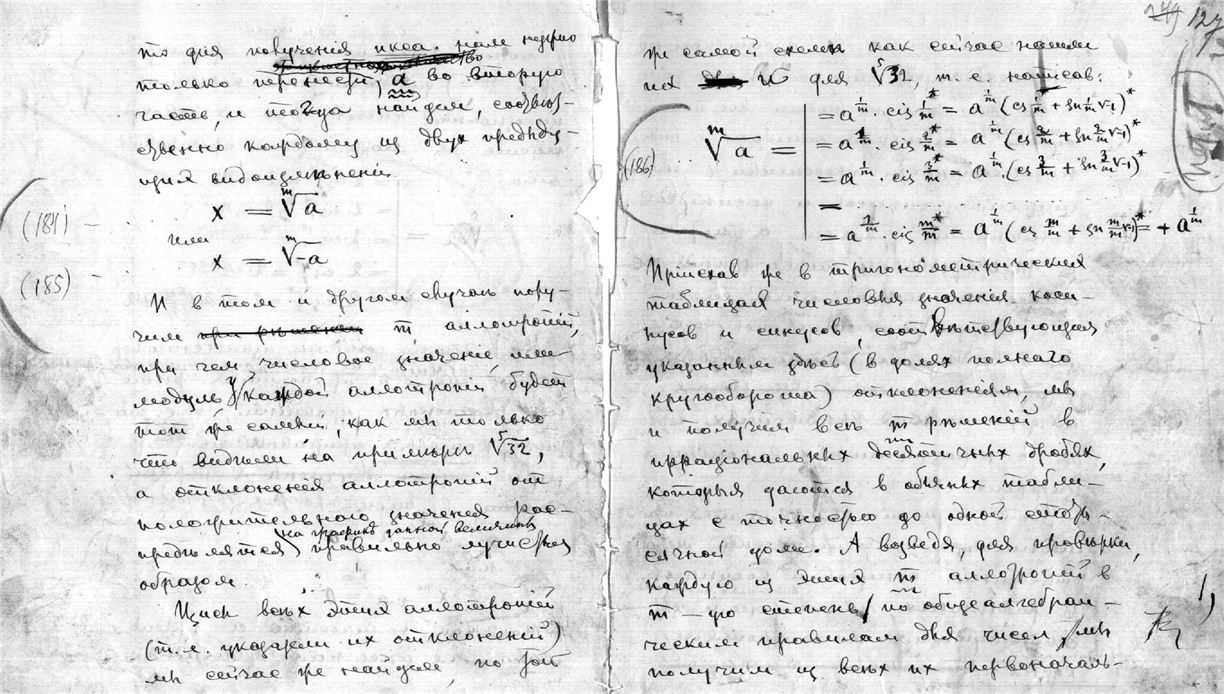 то для получения икса нам нужно
только перенести a во вторую
часть, и тогда найдем, соответ-
ственно каждому из двух предыду-
щих видоизменений
(184) x = ᵐ√a
или
(185) x = ᵐ√-a
И в том и другом случаѣ полу-
чим m аллотропий,
при чем числовое значение, или
модуль у каждой аллотропий будет
тот же самый как мы только
что видѣли на примѣрѣ ⁵√32,
а отклонения аллотропий от
положительного значения рас-
на графикѣ данной величины
предѣлятся правильно лучистым
образом.
всѣх этих аллотропий
(т.е. указатели их отклонений)
мы сейчас же найдем, по той
127
же самой схемѣ как сейчас нашли
их для ⁵√32, т.е. написав:
(186) ᵐ√a =
= a^{1/m} · cis 1/m* = a^{1/m} (cs 1/m + sn 1/m √-1)*
= a^{1/m} · cis 2/m* = a^{1/m} (cs 2/m + sn 2/m √-1)*
= a^{1/m} · cis 3/m* = a^{1/m} · (cs 3/m + sn 3/m √-1)*
=
= a^{1/m} · cis m/m* = a^{1/m} (cs m/m + sn m/m √-1)* = + a^{1/m}
Приискав же в тригонометрических
таблицах числовыя значения коси-
нусов и синусов, соотвѣтствующия
указанным здѣсь (в долях полнаго
кругооборота) отклонениям, мы
и получим всѣ m рѣшений в
иррациональных десятичных дробях,
которыя даются в обычных табли-
цах с точностью до одной стоты-
сячной доли. А возведя, для провѣрки,
каждую из этих m аллотропий в
m-ую степень по общеалгебраи-
ческим правилам для чисел, мы
получим из всѣх их первоначаль-